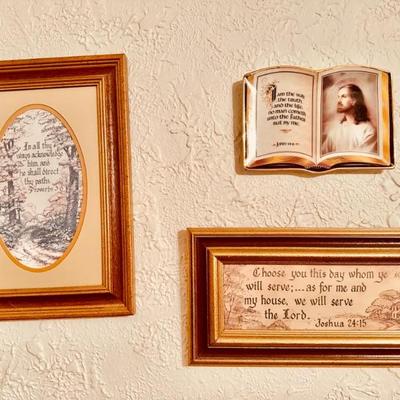 In all thy
ways acknowledge
him, and
he shall direct
thy paths.
Proverbs
I am the way
the truth
and the life,
no man cometh
unto the father
but my me.
John 14:6
Choose you this day whom ye
will serve;...as for me and
my house, we will serve
the Lord. Joshua 24:15